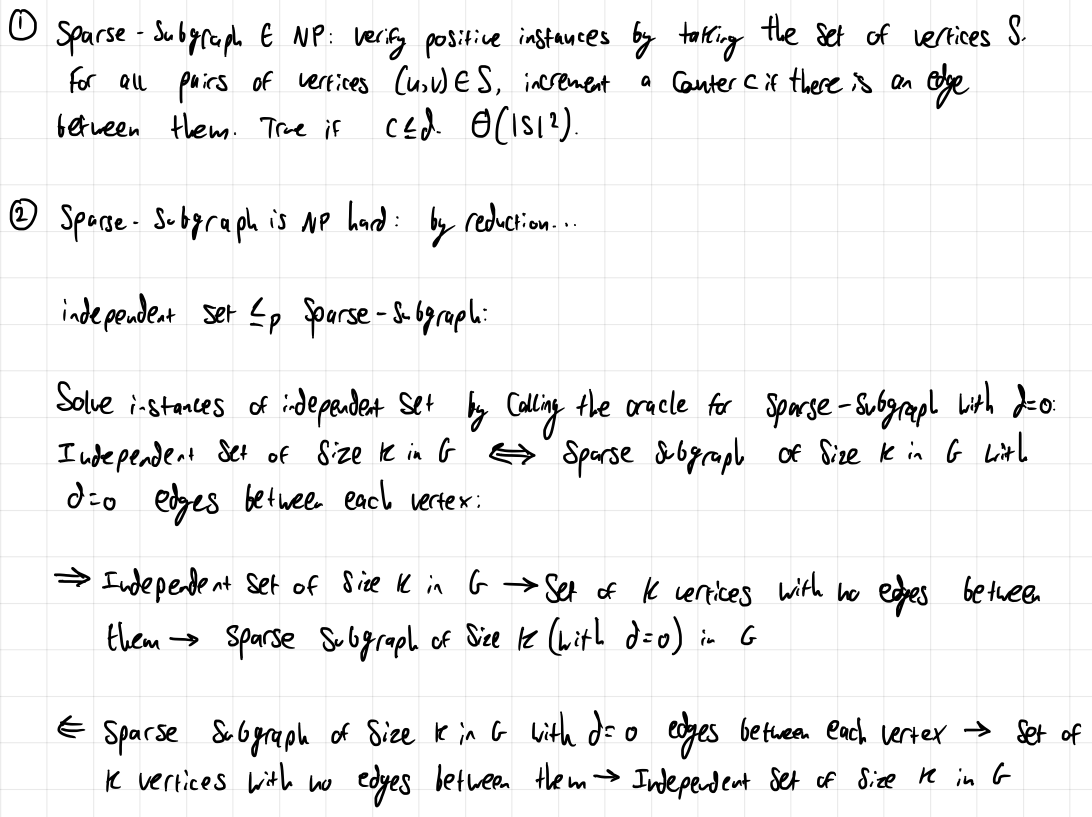 ① Sparse-Subgraph ∈ NP: verify positive instances by taking the set of vertices S.
For all pairs of vertices (u,v) ∈ S, increment a counter c if there is an edge
between them. True if c ≤ d. Θ(|S|²).
② Sparse-Subgraph is NP hard: by reduction...
independent set ≤p Sparse-Subgraph:
Solve instances of independent set by calling the oracle for Sparse-Subgraph with d=0:
Independent set of size K in G ⟺ Sparse Subgraph of size K in G with
d=0 edges between each vertex:
⇒ Independent set of size K in G → Set of K vertices with no edges between
them → Sparse Subgraph of size K (with d=0) in G
⇐ Sparse Subgraph of size K in G with d=0 edges between each vertex → set of
K vertices with no edges between them → Independent set of size K in G